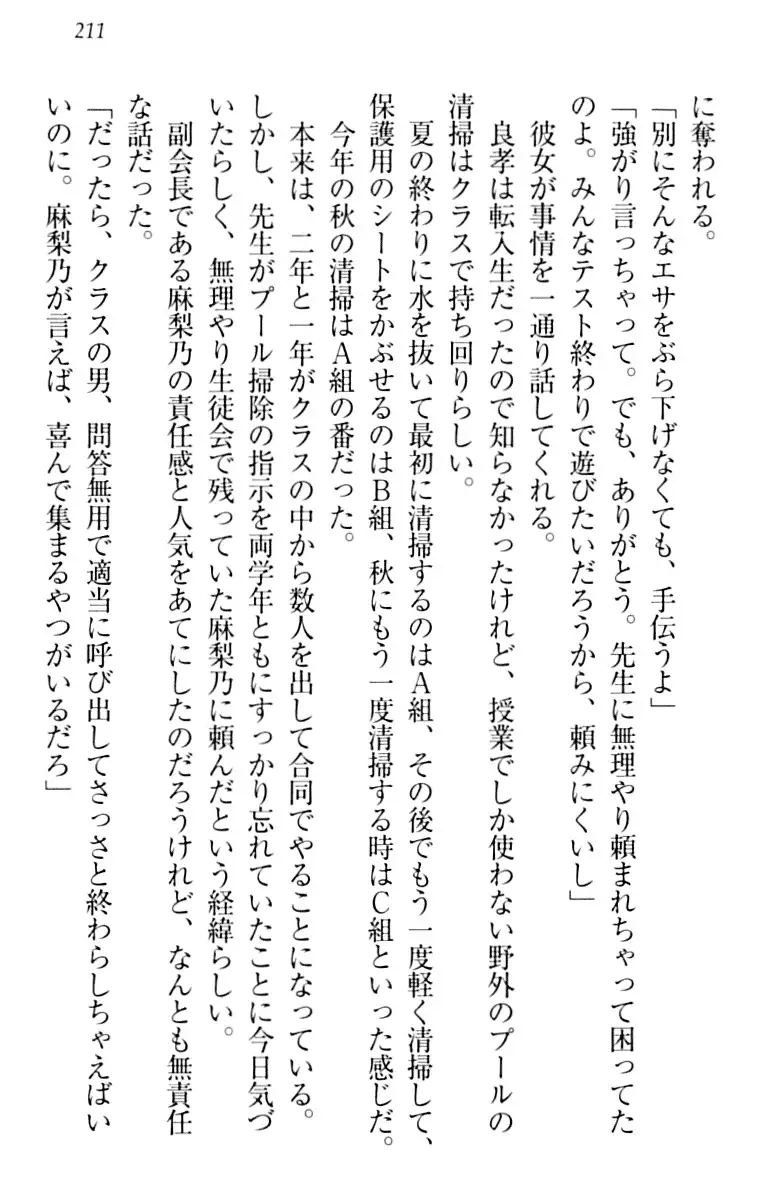 211
に奪われる。
「別にそんなエサをぶら下げなくても、手伝うよ」
「強がり言っちゃって。でも、ありがとう。先生に無理やり頼まれちゃって困ってた
のよ。みんなテスト終わりで遊びたいだろうから、頼みにくいし」
彼女が事情を一通り話してくれる。
良孝は転入生だったので知らなかったけれど、授業でしか使わない野外のプールの
清掃はクラスで持ち回りらしい。
夏の終わりに水を抜いて最初に清掃するのはA組、その後でもう一度軽く清掃して、
保護用のシートをかぶせるのはB組、秋にもう一度清掃する時はC組といった感じだ。
今年の秋の清掃はA組の番だった。
本来は、二年と一年がクラスの中から数人を出して合同でやることになっている。
しかし、先生がプール掃除の指示を両学年ともにすっかり忘れていたことに今日気づ
いたらしく、無理やり生徒会で残っていた麻梨乃に頼んだという経緯らしい。
副会長である麻梨乃の責任感と人気をあてにしたのだろうけれど、なんとも無責任
な話だった。
「だったら、クラスの男、問答無用で適当に呼び出してさっさと終わらしちゃえばい
いのに。麻梨乃が言えば、喜んで集まるやつがいるだろ」